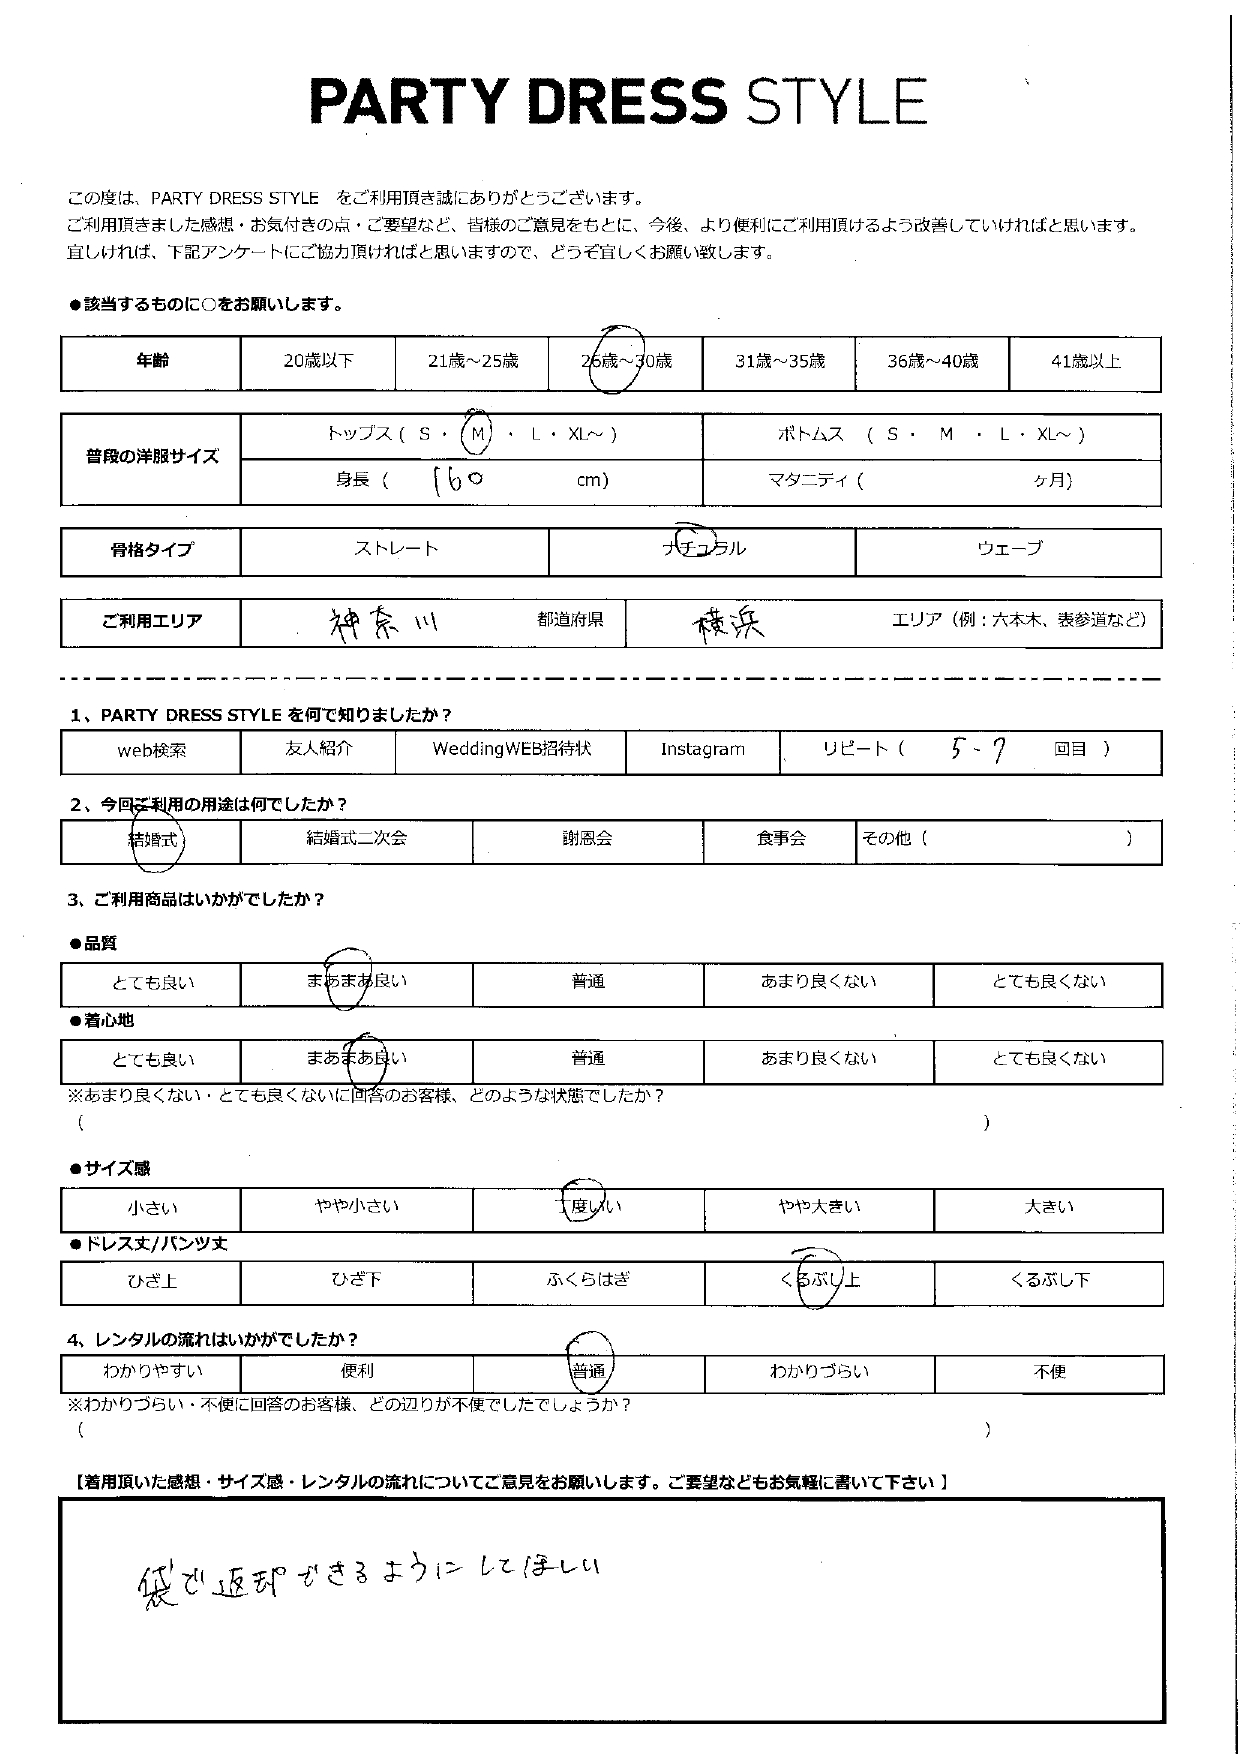 PARTY DRESS STYLE
この度は、PARTY DRESS STYLE をご利用頂き誠にありがとうございます。
ご利用頂きました感想・お気付きの点・ご要望など、皆様のご意見をもとに、今後、より便利にご利用頂けるよう改善していければと思います。
宜しければ、下記アンケートにご協力頂ければと思いますので、どうぞ宜しくお願い致します。
●該当するものに○をお願いします。
年齢 20歳以下 21歳～25歳 26歳～30歳 31歳～35歳 36歳～40歳 41歳以上
普段の洋服サイズ トップス ( S ・ M ・ L ・ XL～ ) ボトムス ( S ・ M ・ L ・ XL～ )
身長 ( 160 cm) マタニティ ( ヶ月)
骨格タイプ ストレート ナチュラル ウェーブ
ご利用エリア 神奈川 都道府県 横浜 エリア（例：六本木、表参道など）
1、PARTY DRESS STYLE を何で知りましたか？
web検索 友人紹介 WeddingWEB招待状 Instagram リピート ( 5-7 回目 )
2、今回ご利用の用途は何でしたか？
結婚式 結婚式二次会 謝恩会 食事会 その他 ( )
3、ご利用商品はいかがでしたか？
●品質
とても良い まあまあ良い 普通 あまり良くない とても良くない
●着心地
とても良い まあまあ良い 普通 あまり良くない とても良くない
※あまり良くない・とても良くないに回答のお客様、どのような状態でしたか？
( )
●サイズ感
小さい やや小さい 丁度いい やや大きい 大きい
●ドレス丈/パンツ丈
ひざ上 ひざ下 ふくらはぎ くるぶし上 くるぶし下
4、レンタルの流れはいかがでしたか？
わかりやすい 便利 普通 わかりづらい 不便
※わかりづらい・不便に回答のお客様、どの辺りが不便でしたでしょうか？
( )
【着用頂いた感想・サイズ感・レンタルの流れについてご意見をお願いします。ご要望などもお気軽に書いて下さい 】
袋で返却できるようにしてほしい